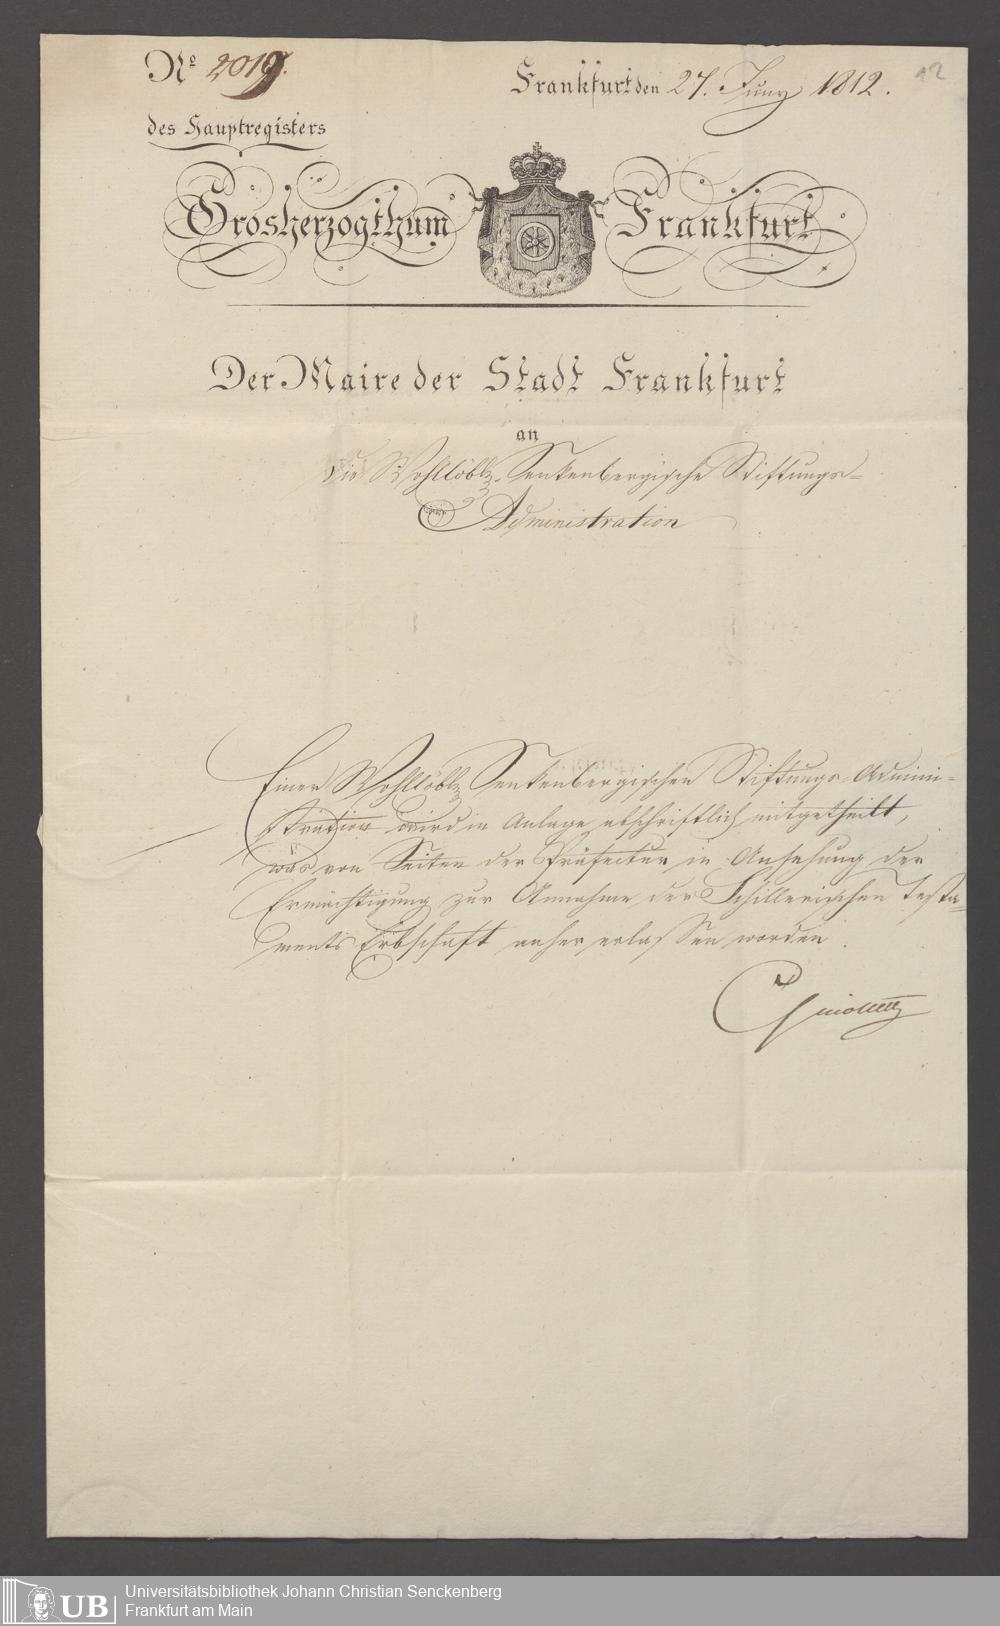 No 2019.
Frankfurt den 27. Juny 1812.
12
des Hauptregisters
Grosherzogthum Frankfurt
Der Maire der Stadt Frankfurt
an
Die Wohllöbl. Senkenbergische Stiftungs-
Administration
Einer Wohllöbl. Senkenbergischen Stiftungs-Admini-
stration wird in Anlage abschriftlich mitgetheilt,
was von Seiten der Präfectur in Ansehung der
Ermächtigung zur Annahme der Schillerischen Testa-
ments Erbschaft anher erlassen worden.
Guiollett
UB
Universitätsbibliothek Johann Christian Senckenberg
Frankfurt am Main